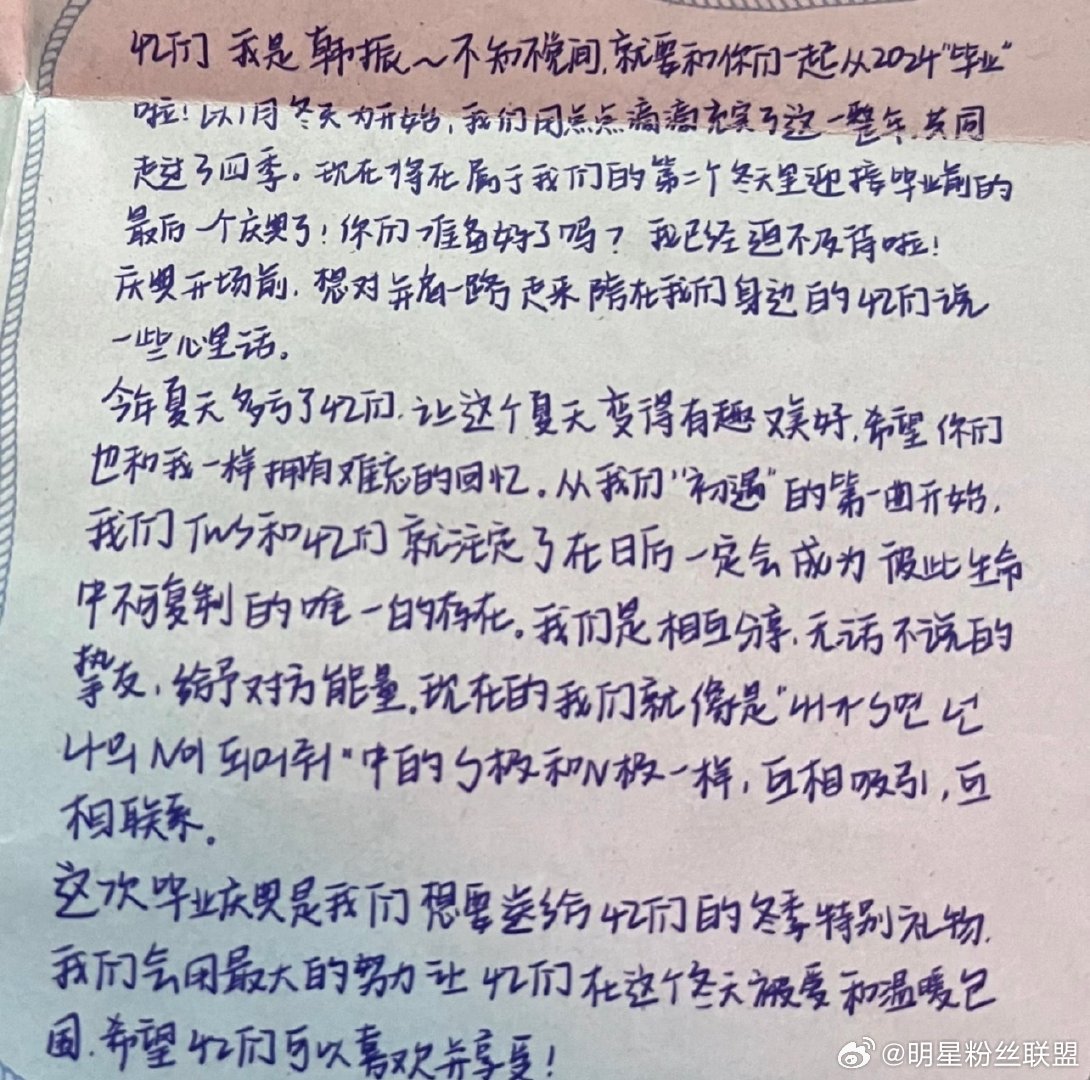 42们 我是韩振~不知不觉间,就要和你们一起从2024"毕业"
啦!以1月冬天为开始,我们用点点滴滴充实了这一整年,共同
走过了四季。现在将在属于我们的第二个冬天里迎接毕业前的
最后一个庆典了!你们准备好了吗?我已经迫不及待啦!
庆典开场前,想对并肩一路走来陪在我们身边的42们说
一些心里话。
今年夏天多亏了42们,让这个夏天变得有趣又美好,希望你们
也和我一样拥有难忘的回忆。从我们"初遇"的第一曲开始,
我们TWS和42们就注定了在日后一定会成为彼此生命
中不可复制的唯一的存在。我们是相互分享,无话不说的
挚友,给予对方能量。现在的我们就像是"내가 S면 넌
나의 N이 되어줘"中的S极和N极一样,互相吸引,互
相联系。
这次毕业庆典是我们想要送给42们的冬季特别礼物,
我们会用最大的努力让42们在这个冬天被爱和温暖包
围,希望42们可以喜欢并享受!
@明星粉丝联盟